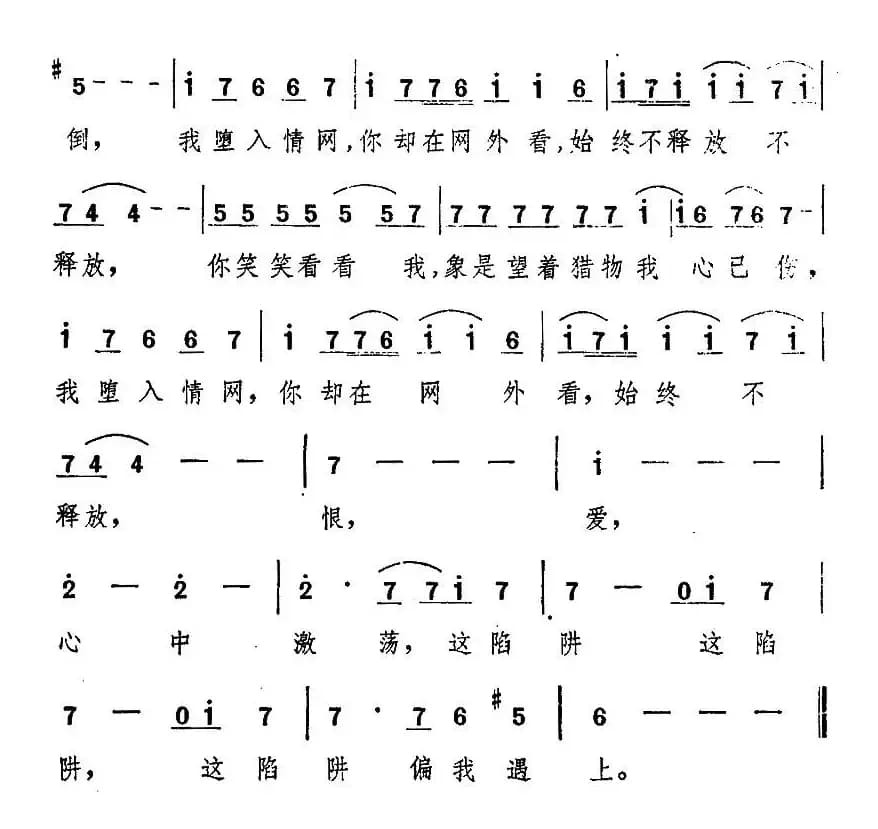 #5 - - - | i 7 6 6 7 | i 7 7 6 i i 6 | i 7 i i i 7 i |
倒， 我堕入情网，你却在网外看，始终不释放 不
7 4 4 - - | 5 5 5 5 5 5 5 7 | 7 7 7 7 7 7 7 i | i 6 7 6 7 -
释放， 你笑笑看看 我，象是望着猎物我 心已伤，
i 7 6 6 7 | i 7 7 6 i i 6 | i 7 i i i 7 i |
我堕入情网，你却在 网 外看，始终 不
7 4 4 — — | 7 — — — | i — — — |
释放， 恨， 爱，
2 — 2 — | 2 · 7 7 i 7 | 7 — 0 i 7 |
心 中 激 荡，这陷 阱 这陷
7 — 0 i 7 | 7 · 7 6 #5 | 6 — — — ‖
阱， 这陷 阱 偏我遇 上。